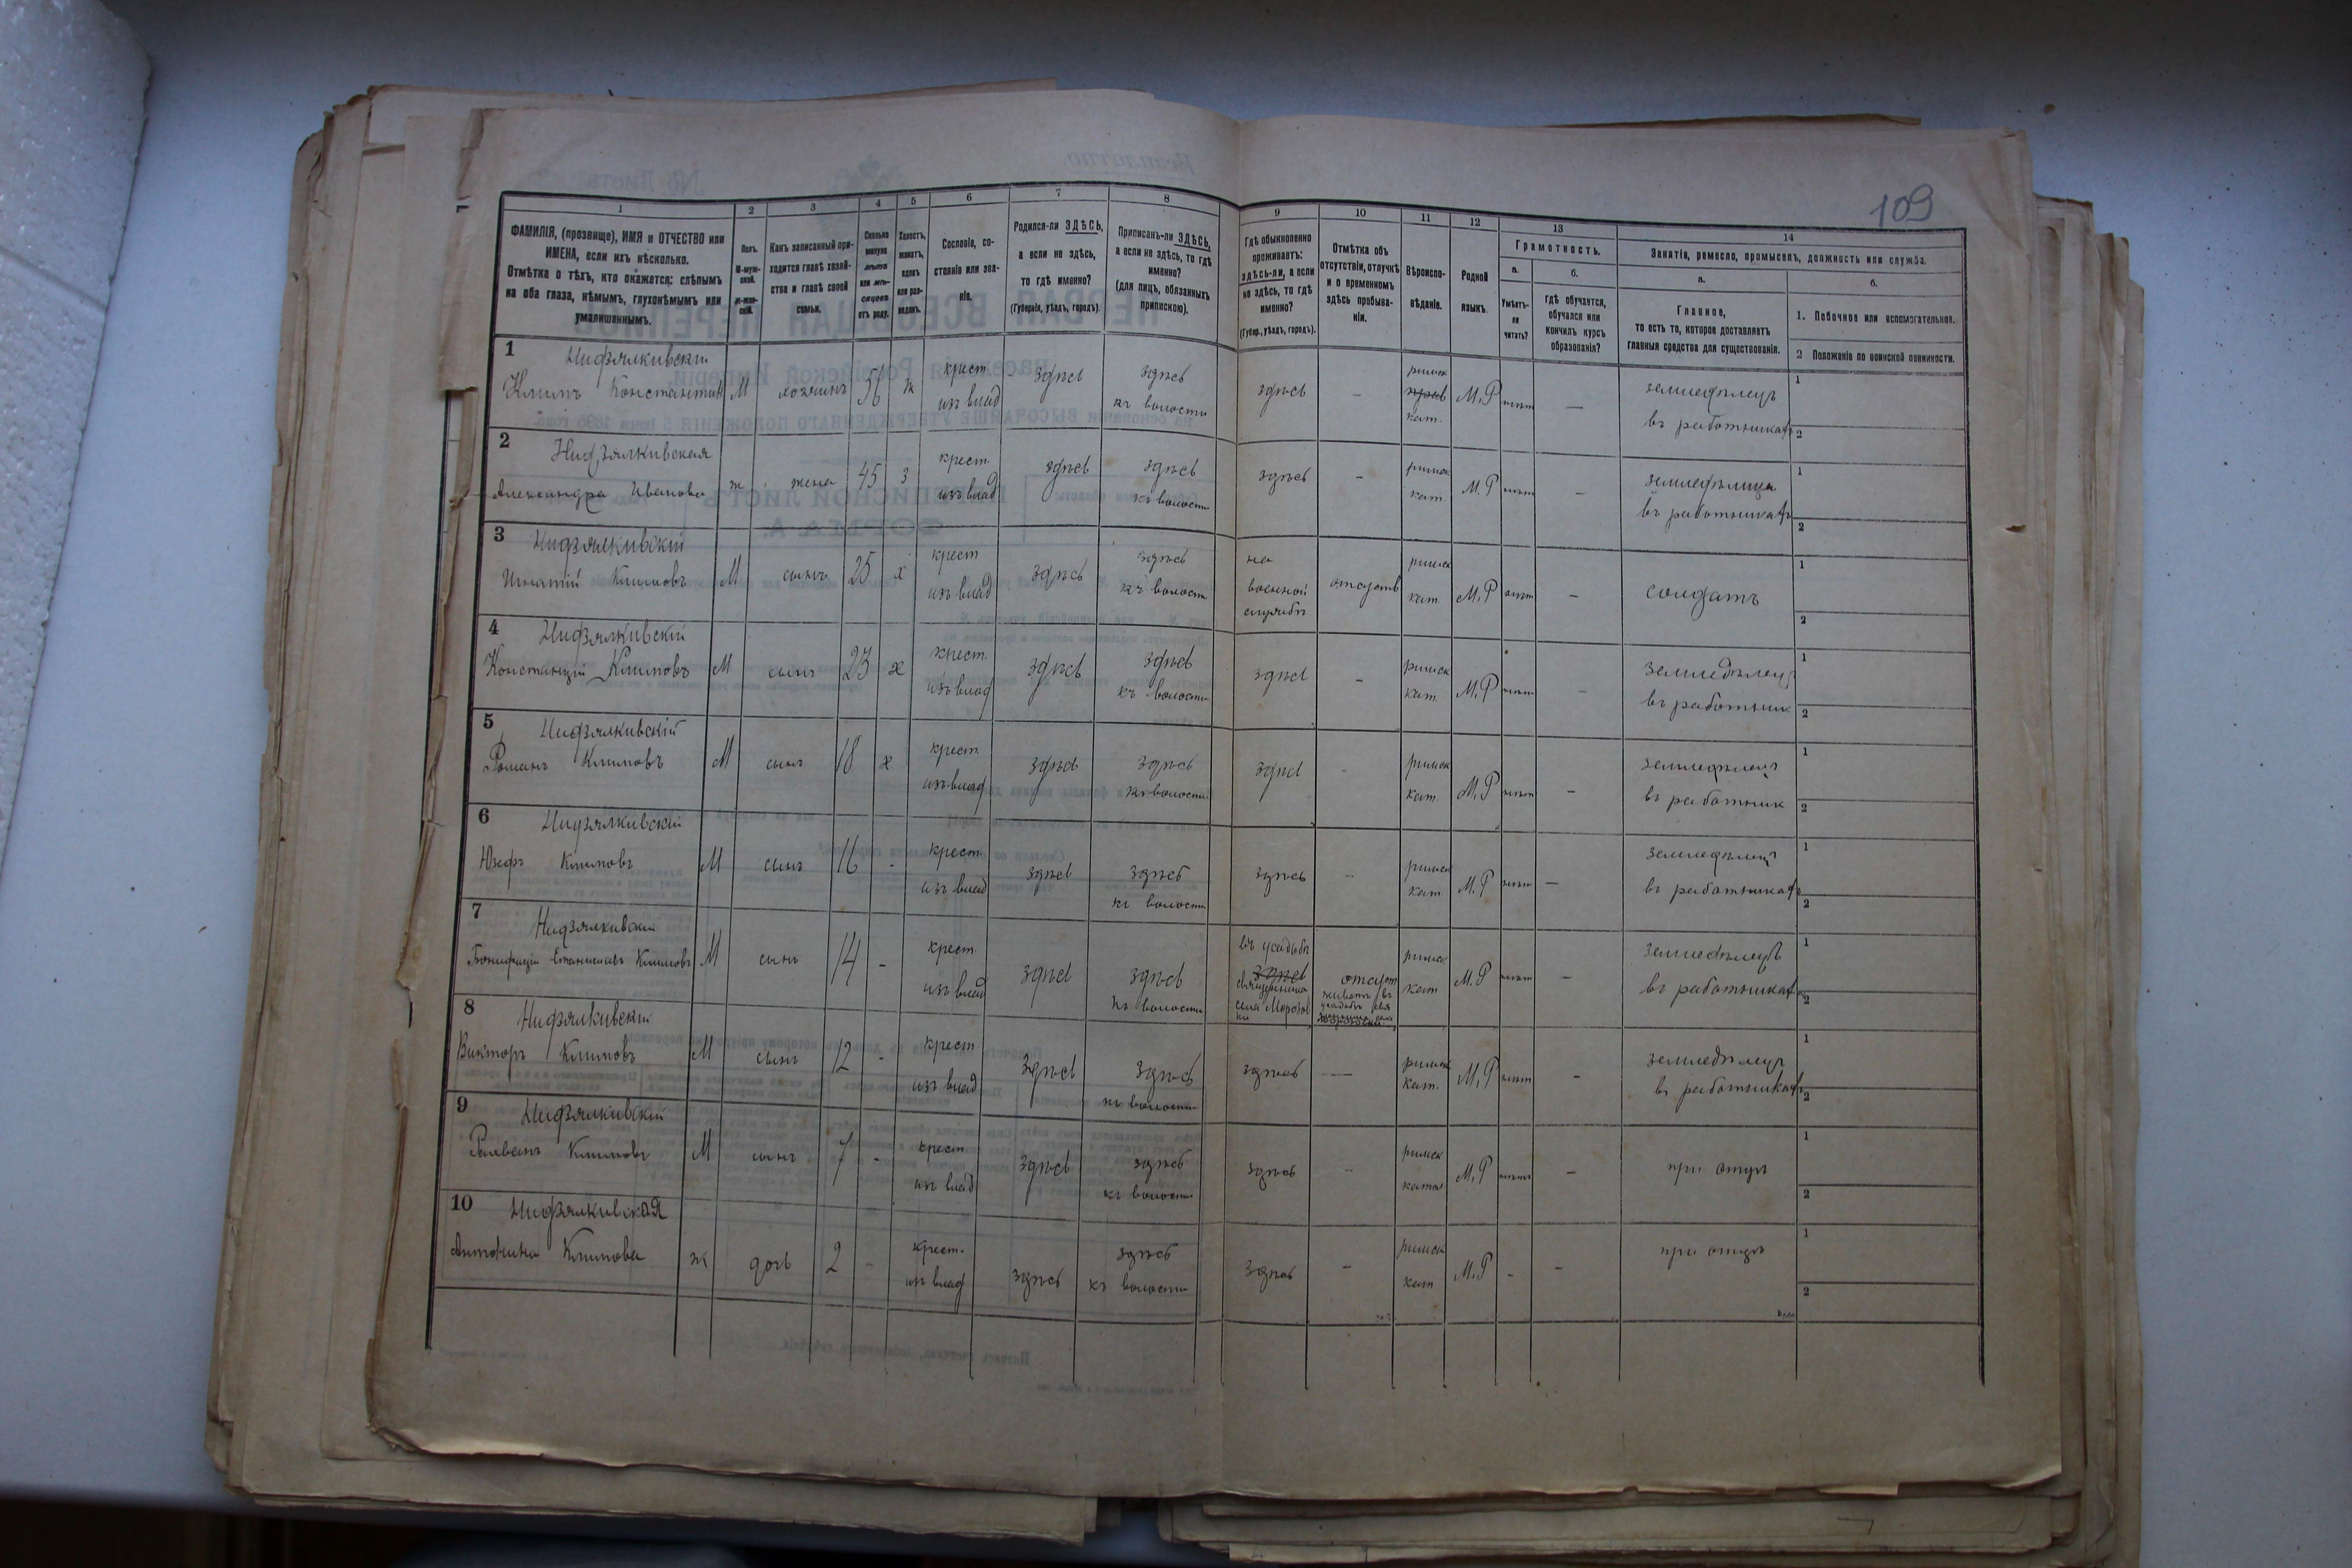 109
1 2 3 4 5 6 7 8 9 10 11 12 13 14
ФАМИЛІЯ, (прозвище), ИМЯ и ОТЧЕСТВО или
ИМЕНА, если ихъ нѣсколько.
Отмѣтка о тѣхъ, кто окажется: слѣпымъ
на оба глаза, нѣмымъ, глухонѣмымъ или
умалишеннымъ.
Полъ.
М-муж-
ской.
ж-жен-
скій.
Какъ записанный при-
ходится главѣ хозяй-
ства и главѣ своей
семьи.
Сколько
минуло
лѣтъ
или мѣ-
сяцевъ
отъ роду.
Холостъ,
женатъ,
вдовъ
или раз-
веденъ.
Сословіе, со-
стояніе или зва-
ніе.
Родился-ли ЗДѢСЬ,
а если не здѣсь,
то гдѣ именно?
(Губернія, уѣздъ, городъ).
Приписанъ-ли ЗДѢСЬ,
а если не здѣсь, то гдѣ
именно?
(для лицъ, обязанныхъ
припискою).
Гдѣ обыкновенно
проживаетъ:
здѣсь-ли, а если
не здѣсь, то гдѣ
именно?
(Губер., уѣздъ, городъ).
Отмѣтка объ
отсутствіи, отлучкѣ
и о временномъ
здѣсь пребыва-
ніи.
Вѣроиспо-
вѣданіе.
Родной
языкъ.
Грамотность.
а.
Умѣетъ-
ли
читать?
б.
Гдѣ обучается,
обучался или
кончилъ курсъ
образованія?
Занятіе, ремесло, промыселъ, должность или служба.
а.
Главное,
то есть то, которое доставляетъ
главныя средства для существованія.
б.
1. Побочное или вспомогательное.
2 Положеніе по воинской повинности.
1 Нидзялкивскій
Климъ Константин М хозяинъ 56 ж крест. изъ влад здѣсь здѣсь къ волости
здѣсь - римск кат. М.Р нѣт — земледѣлецъ въ работникахъ 1 2
2 Нидзялкивская
Александра Иванова ж жена 45 з крест. изъ влад здѣсь здѣсь къ волости
здѣсь - римск кат. М.Р нѣт - въ работникахъ 1 2
3 Нидзялкивскій
Игнатій Климовъ М сынъ 25 х крест изъ влад здѣсь здѣсь къ волости
на военной службѣ отсутств римск кат. М.Р нѣт - солдатъ 1 2
4 Нидзялкивскій
Константій Климовъ М сынъ 23 х крест. изъ влад здѣсь здѣсь къ волости
здѣсь - римск кат. М.Р нѣт - земледѣлец въ работник 1 2
5 Нидзялкивскій
Романъ Климовъ М сынъ 18 х крест. изъ влад здѣсь здѣсь къ волости
здѣсь - римск кат. М.Р нѣт - земледѣлец въ работник 1 2
6 Нидзялкивскій
Юзефъ Климовъ М сынъ 16 - крест. изъ влад здѣсь здѣсь къ волости
здѣсь - римск кат М.Р нѣт — земледѣлец въ работникахъ 1 2
7 Нидзялкивскій
Бонифацій Станиславъ Климовъ М сынъ 14 - крест. изъ влад здѣсь здѣсь къ волости
въ усадьбѣ здѣсь священника села Морозов ки отсут живетъ въ усадьбѣ римск кат М.Р нѣт - земледѣлецъ въ работникахъ 1 2
8 Нидзялкивскій
Викторъ Климовъ М сынъ 12 - крест. изъ влад здѣсь здѣсь къ волости
здѣсь — римск кат. М.Р нѣт - земледѣлецъ въ работникахъ 1 2
9 Нидзялкивскій
Климовъ М сынъ 7 - крест изъ влад здѣсь здѣсь къ волости
здѣсь - римск катол М.Р нѣтъ - при отцѣ 1 2
10 Нидзялкивская
Антонина Климова ж дочь 2 - крест. изъ влад здѣсь здѣсь къ волости
здѣсь - римск кат М.Р - - при отцѣ 1 2